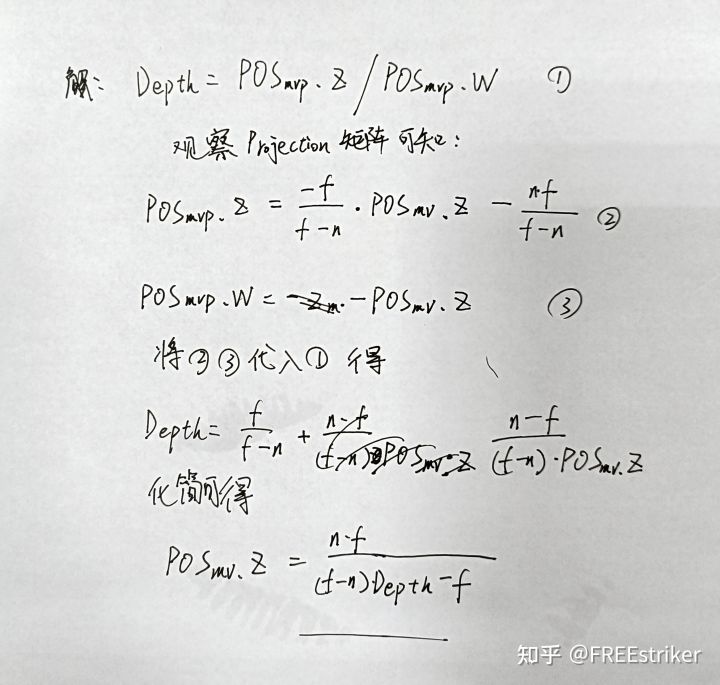 解: Depth = POSmvp.Z / POSmvp.W ①
观察 Projection 矩阵可知:
POSmvp.Z = -f/(f-n) · POSmv.Z - n·f/(f-n) ②
POSmvp.W = -POSmv.Z ③
将②③代入① 得
Depth = f/(f-n) + n-f/((f-n)·POSmv.Z)
化简可得
POSmv.Z = n·f/((f-n)Depth-f)
知乎 @FREEstriker